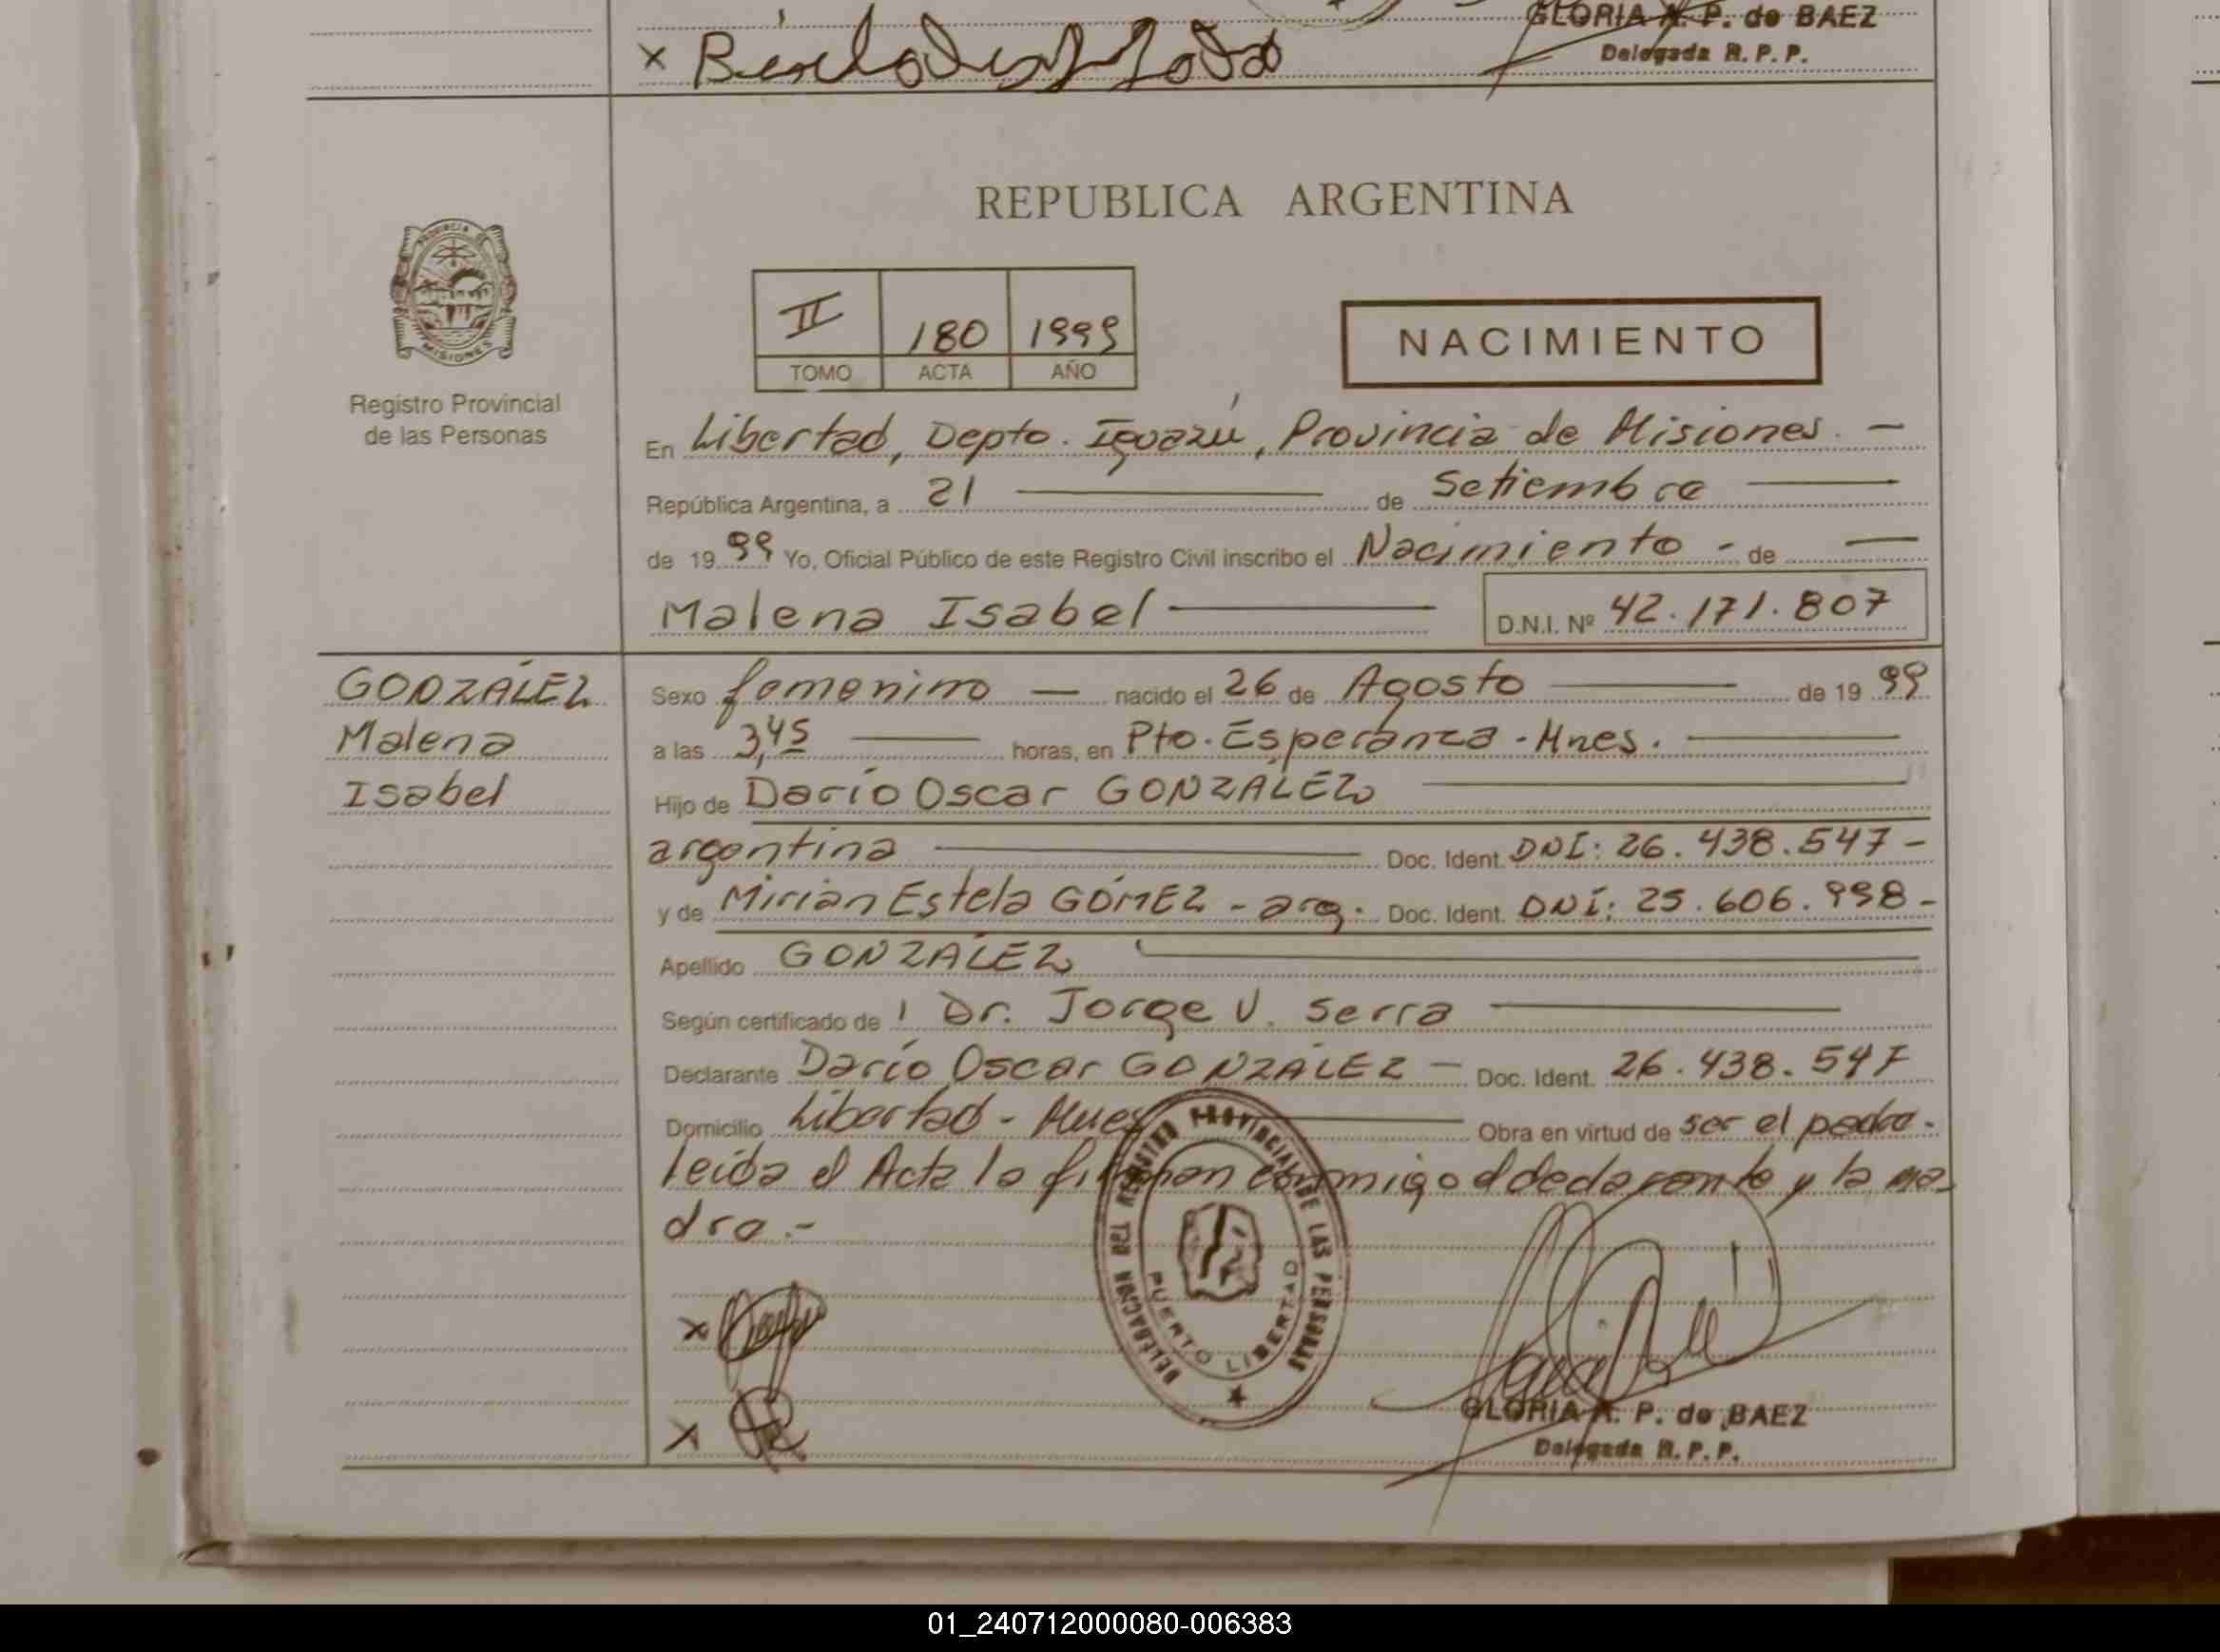 GLORIA A. P. de BAEZ
Delegada R. P. P.
REPUBLICA ARGENTINA
PROVINCIA DE
MISIONES
Registro Provincial
de las Personas
II 180 1999
TOMO ACTA AÑO
NACIMIENTO
En Libertad, Depto. Iguazú, Provincia de Misiones. -
República Argentina, a 21 de Setiembre
de 1999 Yo, Oficial Público de este Registro Civil inscribo el Nacimiento - de
Malena Isabel
D.N.I. Nº 42.171.807
GONZÁLEZ
Malena
Isabel
Sexo femenino nacido el 26 de Agosto de 1999
a las 3,45 horas, en Pto. Esperanza - Mnes.
Hijo de Darío Oscar GONZÁLEZ
argentina Doc. Ident. DNI: 26.438.547 -
y de Mirian Estela GÓMEZ - arg. Doc. Ident. DNI: 25.606.998 -
Apellido GONZÁLEZ
Según certificado de Dr. Jorge V. Serra
Declarante Darío Oscar GONZÁLEZ - Doc. Ident. 26.438.547
Domicilio Libertad - Mnes Obra en virtud de ser el padre.
Leída el Acta la firman conmigo el declarante y la ma
dre.-
DELEGACION DEL REGISTRO PROVINCIAL DE LAS PERSONAS
PUERTO LIBERTAD
GLORIA A. P. de BAEZ
Delegada R. P. P.
01_240712000080-006383